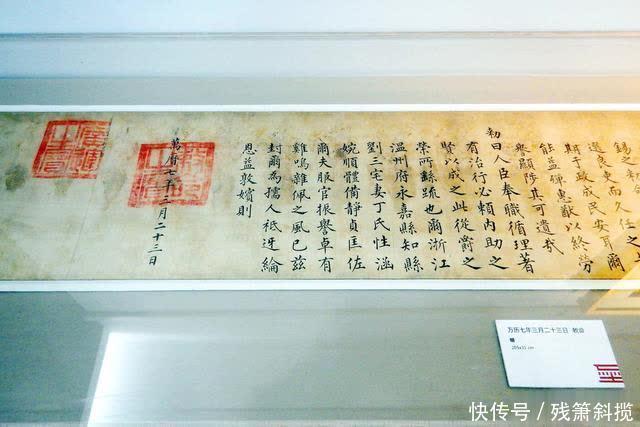 錫之
選良吏而久任之
期于政成民安耳爾
能益殫忠猷以終勞
與顯陟其可遺哉
勑曰人臣奉職循理著
有治行必賴内助之
賢以成之此從爵之
榮所繇疏也爾浙江
温州府永嘉縣知縣
劉三宅妻丁氏性涵
婉順體備靜貞匡佐
爾夫服官振譽卓有
雞鳴雜佩之風已兹
封爾為孺人祗迓綸
恩益敦嬪則
萬曆七年三月二十三日
廣運之寶
万历七年三月二十三日 敕命
205x31 cm
快传号／残箫斜揽